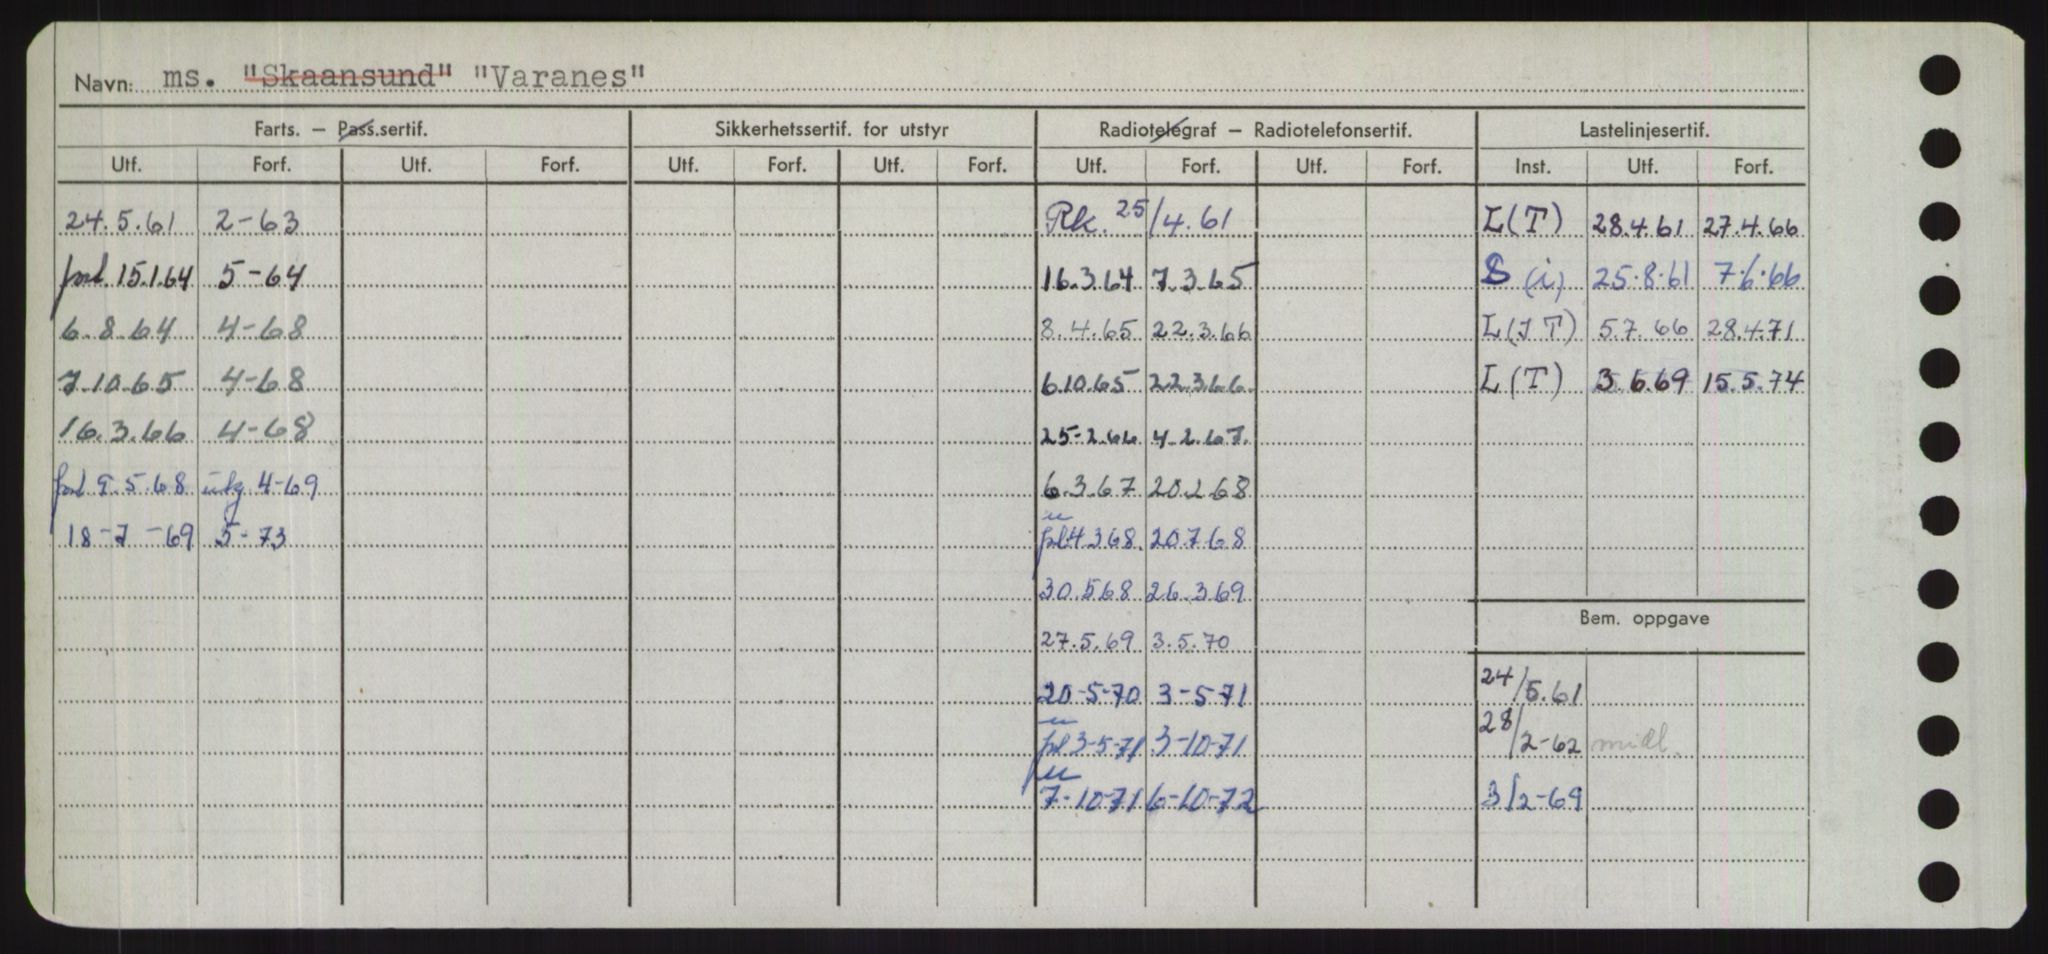 Navn: ms. "Skaansund" "Varanes"
Farts. — Pass.sertif. Sikkerhetssertif. for utstyr Radiotelegraf — Radiotelefonsertif. Lastelinjesertif.
Utf. Forf. Utf. Forf. Utf. Forf. Utf. Forf. Utf. Forf. Utf. Forf. Inst. Utf. Forf.
24.5.61 2-63 Rk. 25/4.61 L(T) 28.4.61 27.4.66
forl. 15.1.64 5-64 16.3.64 7.3.65 S (i) 25.8.61 7.6.66
6.8.64 4-68 8.4.65 22.3.66 L(IT) 5.7.66 28.4.71
7.10.65 4-68 6.10.65 22.3.66 L(T) 3.6.69 15.5.74
16.3.66 4-68 25-2.66 4.2.67.
9.5.68 utg 4-69 6.3.67 20.2.68
18-7-69 5-73 4.3.68. 20.7.68
30.5.68 26.3.69
Bem. oppgave
27.5.69 3.5.70
20-5-70 3-5-71 24/5.61
3-5-71 3-10-71 28/2-62 midl.
7-10-71 6-10-72 3/2-69